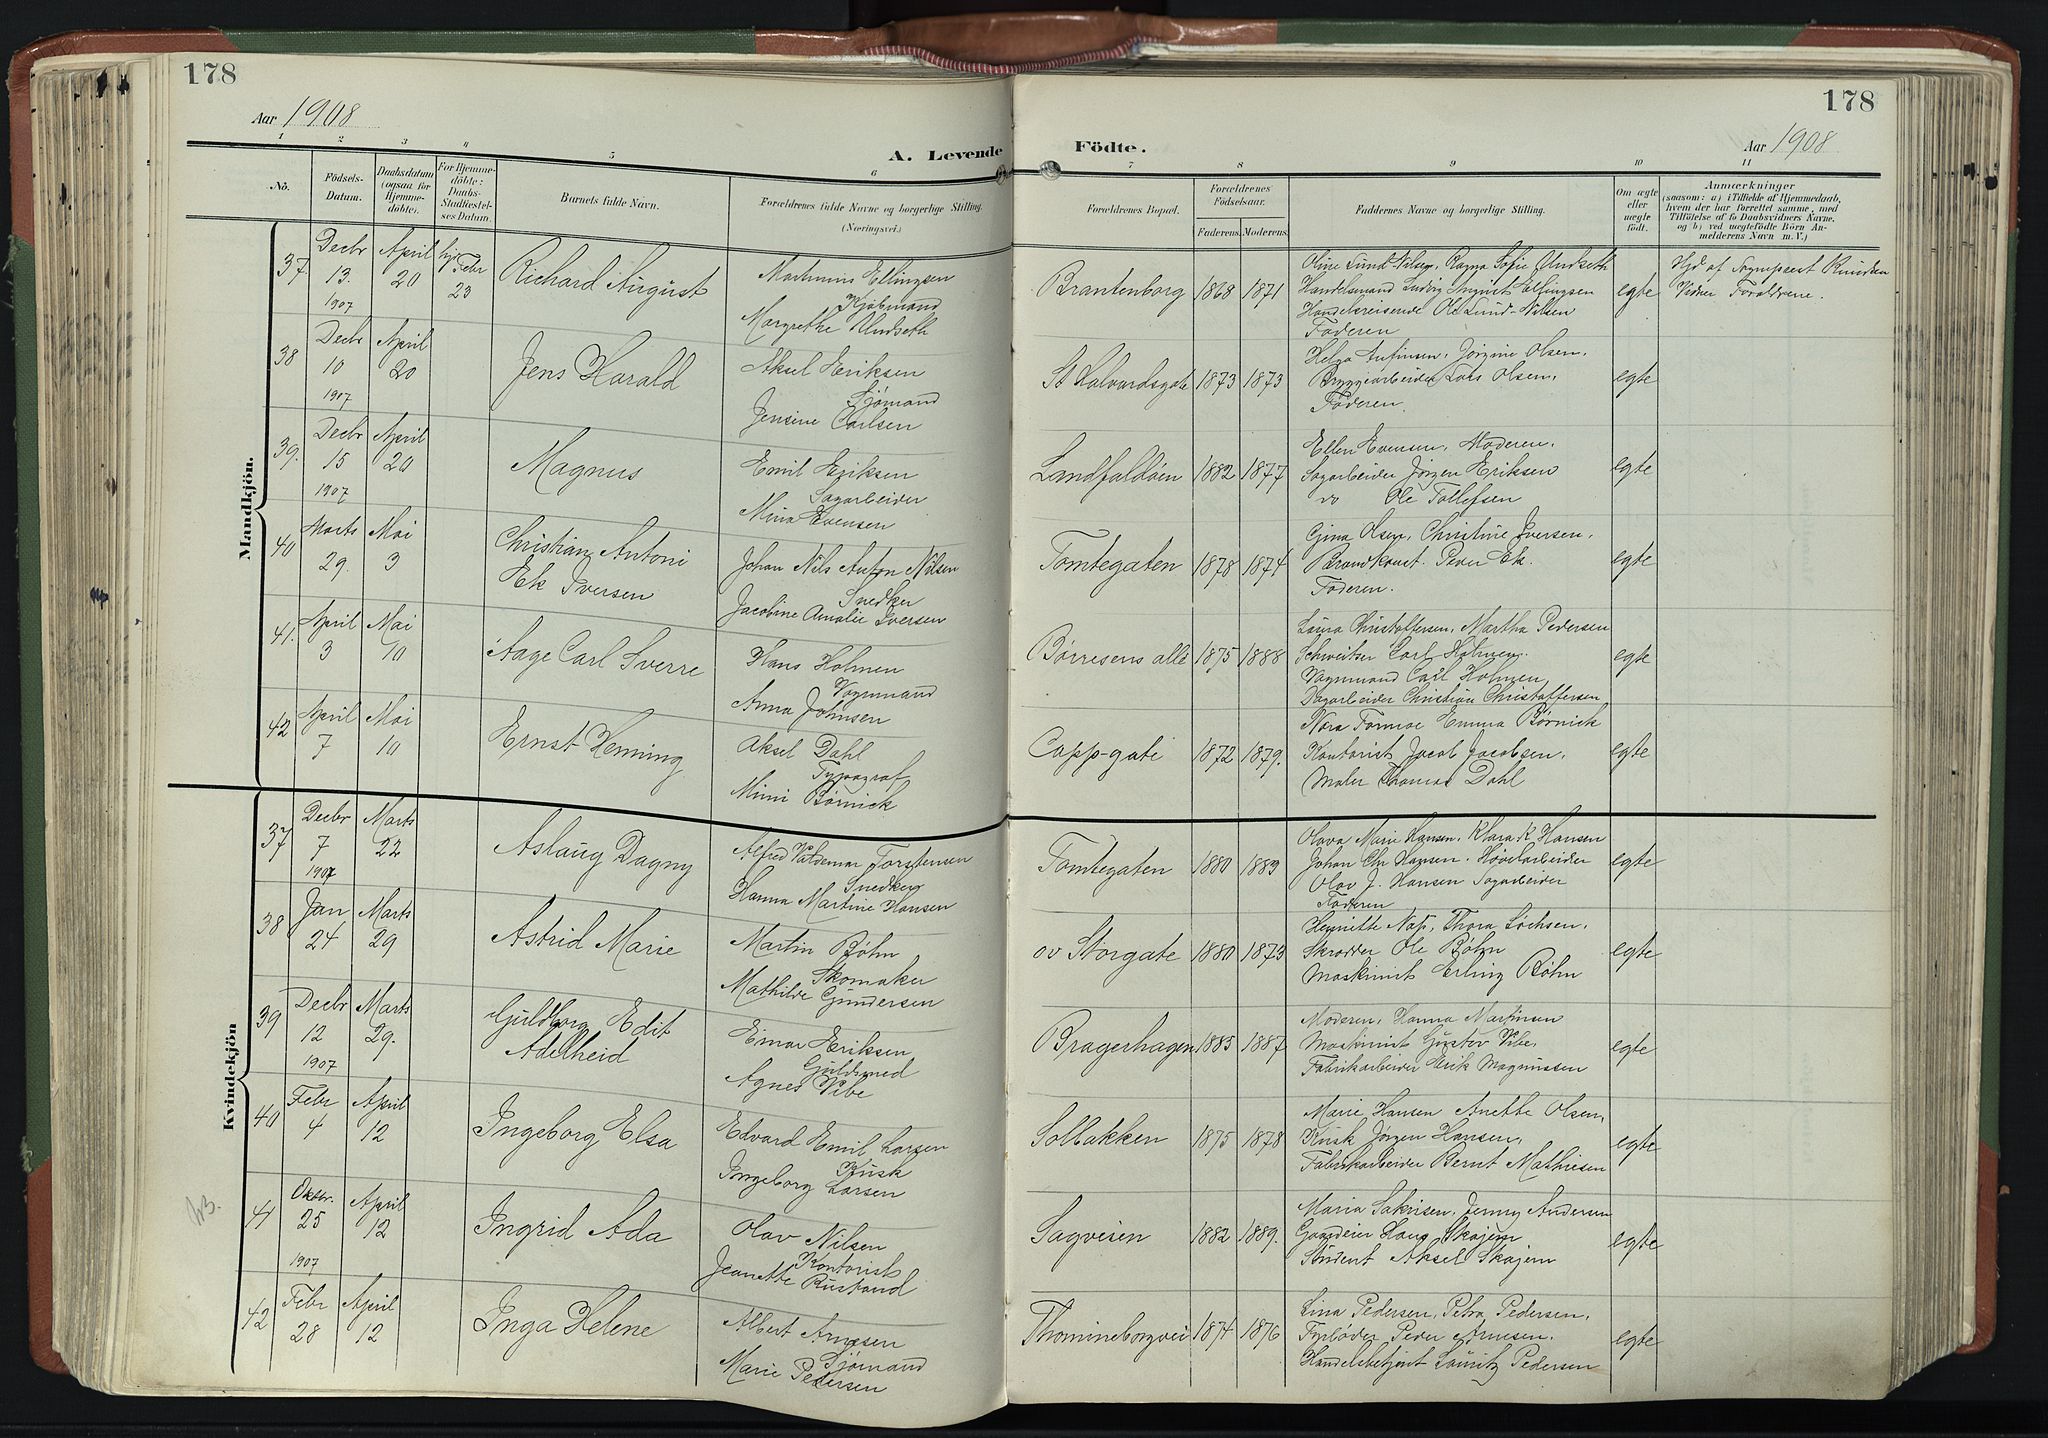 178
Aar 1908
A. Levende
1 2 3 4 5 6
No. Födsels-Datum. Daabsdatum (ogsaa for Hjemmedöbte). For Hjemmedöbte: Daabs-Stadfæstelses Datum. Barnets fulde Navn. Forældrenes fulde Navne og borgerlige Stilling. (Næringsvei.)
Mandkjön.
37. Decbr 13. 1907 April 20 hj. Febr 23 Richard August
Martinius Ellingsen
Kjøbmand
Margrethe Undseth
38 Decbr 10 1907 April 20 Jens Harald
Aksel Eriksen
Sjømand
Jensine Carlsen
39. Decbr 15 1907 April 20 Magnus
Emil Eriksen
Sagarbeider
Mina Evensen
40 Marts 29. Mai 3 Christian Antoni
Ek Iversen
Johan Nils Anton Nilsen
Snedker
Jacobine Amalie Iversen
41. April 3 Mai 10 Aage Carl Sverre
Hans Holmen
Vognmand
Anna Johnsen
42 April 7 Mai 10 Ernst Henning
Aksel Dahl
Typograf
Mimi Børnick
Kvindekjön
37 Decbr 7 1907 Marts 22 Aslaug Dagny
Alfred Valdemar Torstensen
Snedker
Hanna Martine Hansen
38 Jan 24 Marts 29 Astrid Marie
Martin Bøhn
Skomaker
Mathilde Gundersen
39 Decbr 12 1907 Marts 29. Guldborg Edit
Adelheid
Einar Eriksen
Guldsmed
Agnes Vibe
40 Febr 4 April 12 Ingeborg Elsa
Edvard Emil Larsen
Kusk
Ingeborg Larsen
41 Oktbr. 25 1907 April 12 Ingrid Ada
Olav Nilsen
Kontorist
Jeanette Rustand
42 Febr 28 April 12 Inga Helene
Albert Arnesen
Sjømand
Marie Pedersen
178
Födte.
Aar 1908
7 8 9 10 11
Forældrenes Bopæl. Forældrenes Födselsaar. Faderens. Moderens. Faddernes Navne og borgerlige Stilling. Om ægte eller uægte födt. Anmærkninger
(saasom: a) i Tilfælde af Hjemmedaab, hvem der har forrettet samme, med Tilföielse af to Daabsvidners Navne, og b) ved uægtefödte Börn Anmelderens Navn m. V.)
Brantenborg 1868 1871
Oline Lund-Nilsen, Ragna Sofie Undseth
Handelsmand Ludvig August Ellingsen
Handelsreisende Ole Lund-Nilsen
Faderen
egte
Hjd af Sognepræst Knudsen
Vidner Foraldrene.
St Halvardsgate 1873 1873
Helga Anfinsen, Jørgine Olsen.
Bryggearbeider Lars Olsen.
Faderen.
egte
Landfaldøen 1882 1877
Ellen Evensen, Moderen.
Sagarbeider Jørgen Eriksen
do Ole Tollefsen
egte
Tomtegaten 1878 1874
Gina Olsen, Christine Iversen.
Brandkonst. Peder Ek.
Faderen.
egte
Børresens alle 1875 1888
Laura Christoffersen, Martha Pedersen
Schweitser Carl Holmen.
Vognmand Carl Holmen
Dagarbeider Christian Christoffersen
egte
Capp-gate 1872 1879.
Nora Tormoe Emma Børnick
Kontorist Jacob Jacobsen.
Maler Thomas Dahl
egte
Tomtegaten 1880 1883
Olava Marie Hansen, Klara K Hansen
Johan Chr Hansen. Høvelarbeider
Olav J. Hansen Sagarbeider
Faderen
egte
ov Storgate 1880 1873
Henriette Nap, Thora Lochsen.
Skrædder Ole Bøhn
Maskinist Erling Bøhn
egte
Bragerhagen 1885 1887
Moderen, Hanna Martinsen
Maskinist Gustav Vibe.
Fabrikarbeider Erik Magnussen
egte
Solbakken 1875 1878
Marie Hansen Anette Olsen,
Kusk Jørgen Hansen,
Fabrikarbeider Bernt Mathiesen
egte
Sagveien 1882 1889.
Maria Sakrisen, Jenny Andersen
Gaardeier Hans Skajem
Student Aksel Skajem
egte
Thomineborgvei 1874 1876
Lina Pedersen, Petra Pedersen.
Fyrbøder Peder Arnesen.
Handelsbetjent Lauritz Pedersen
egte